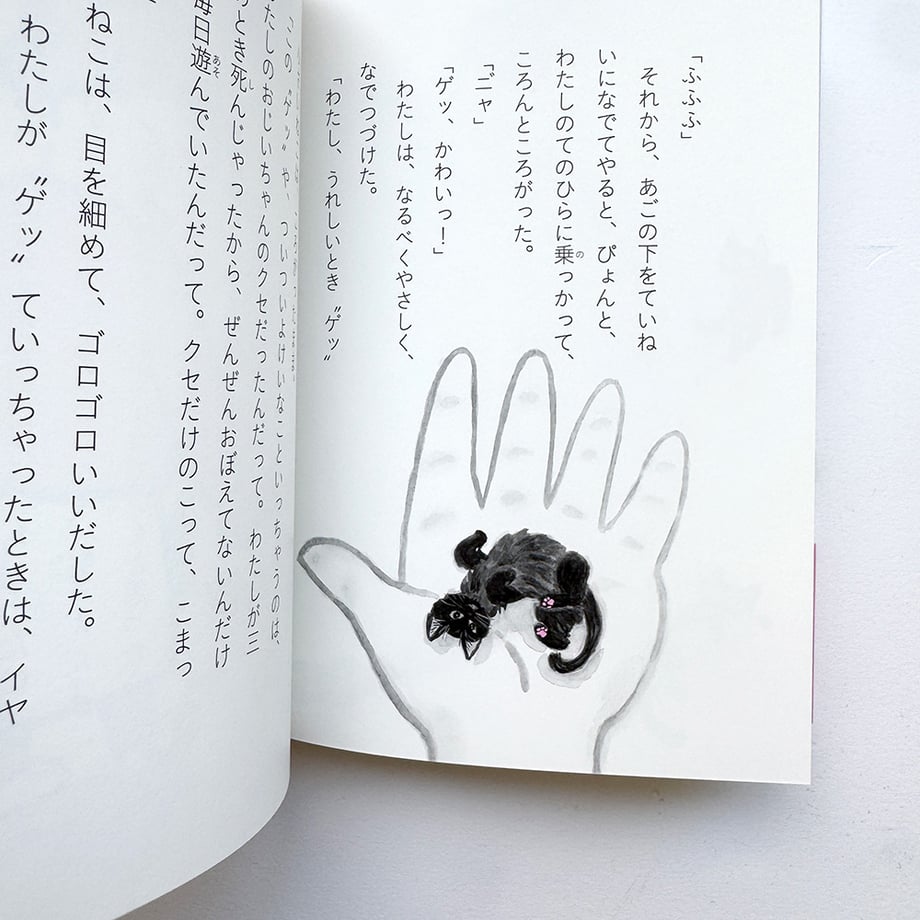 「ふふふ」
それから、あごの下をていね
いになでてやると、ぴょんと、
わたしのてのひらに乗っかって、
ころんところがった。
「ニャ」
「ゲッ、かわいっ！」
わたしは、なるべくやさしく、
なでつづけた。
「わたし、うれしいとき〝ゲッ〟
この〝ゲッ〟や、ついついよけいなこといっちゃうのは、
わたしのおじいちゃんのクセだったんだって。わたしが三
のとき死んじゃったから、ぜんぜんおぼえてないんだけ
毎日遊んでいたんだって。クセだけのこって、こまっ
ねこは、目を細めて、ゴロゴロいいだした。
わたしが〝ゲッ〟ていっちゃったときは、イヤ